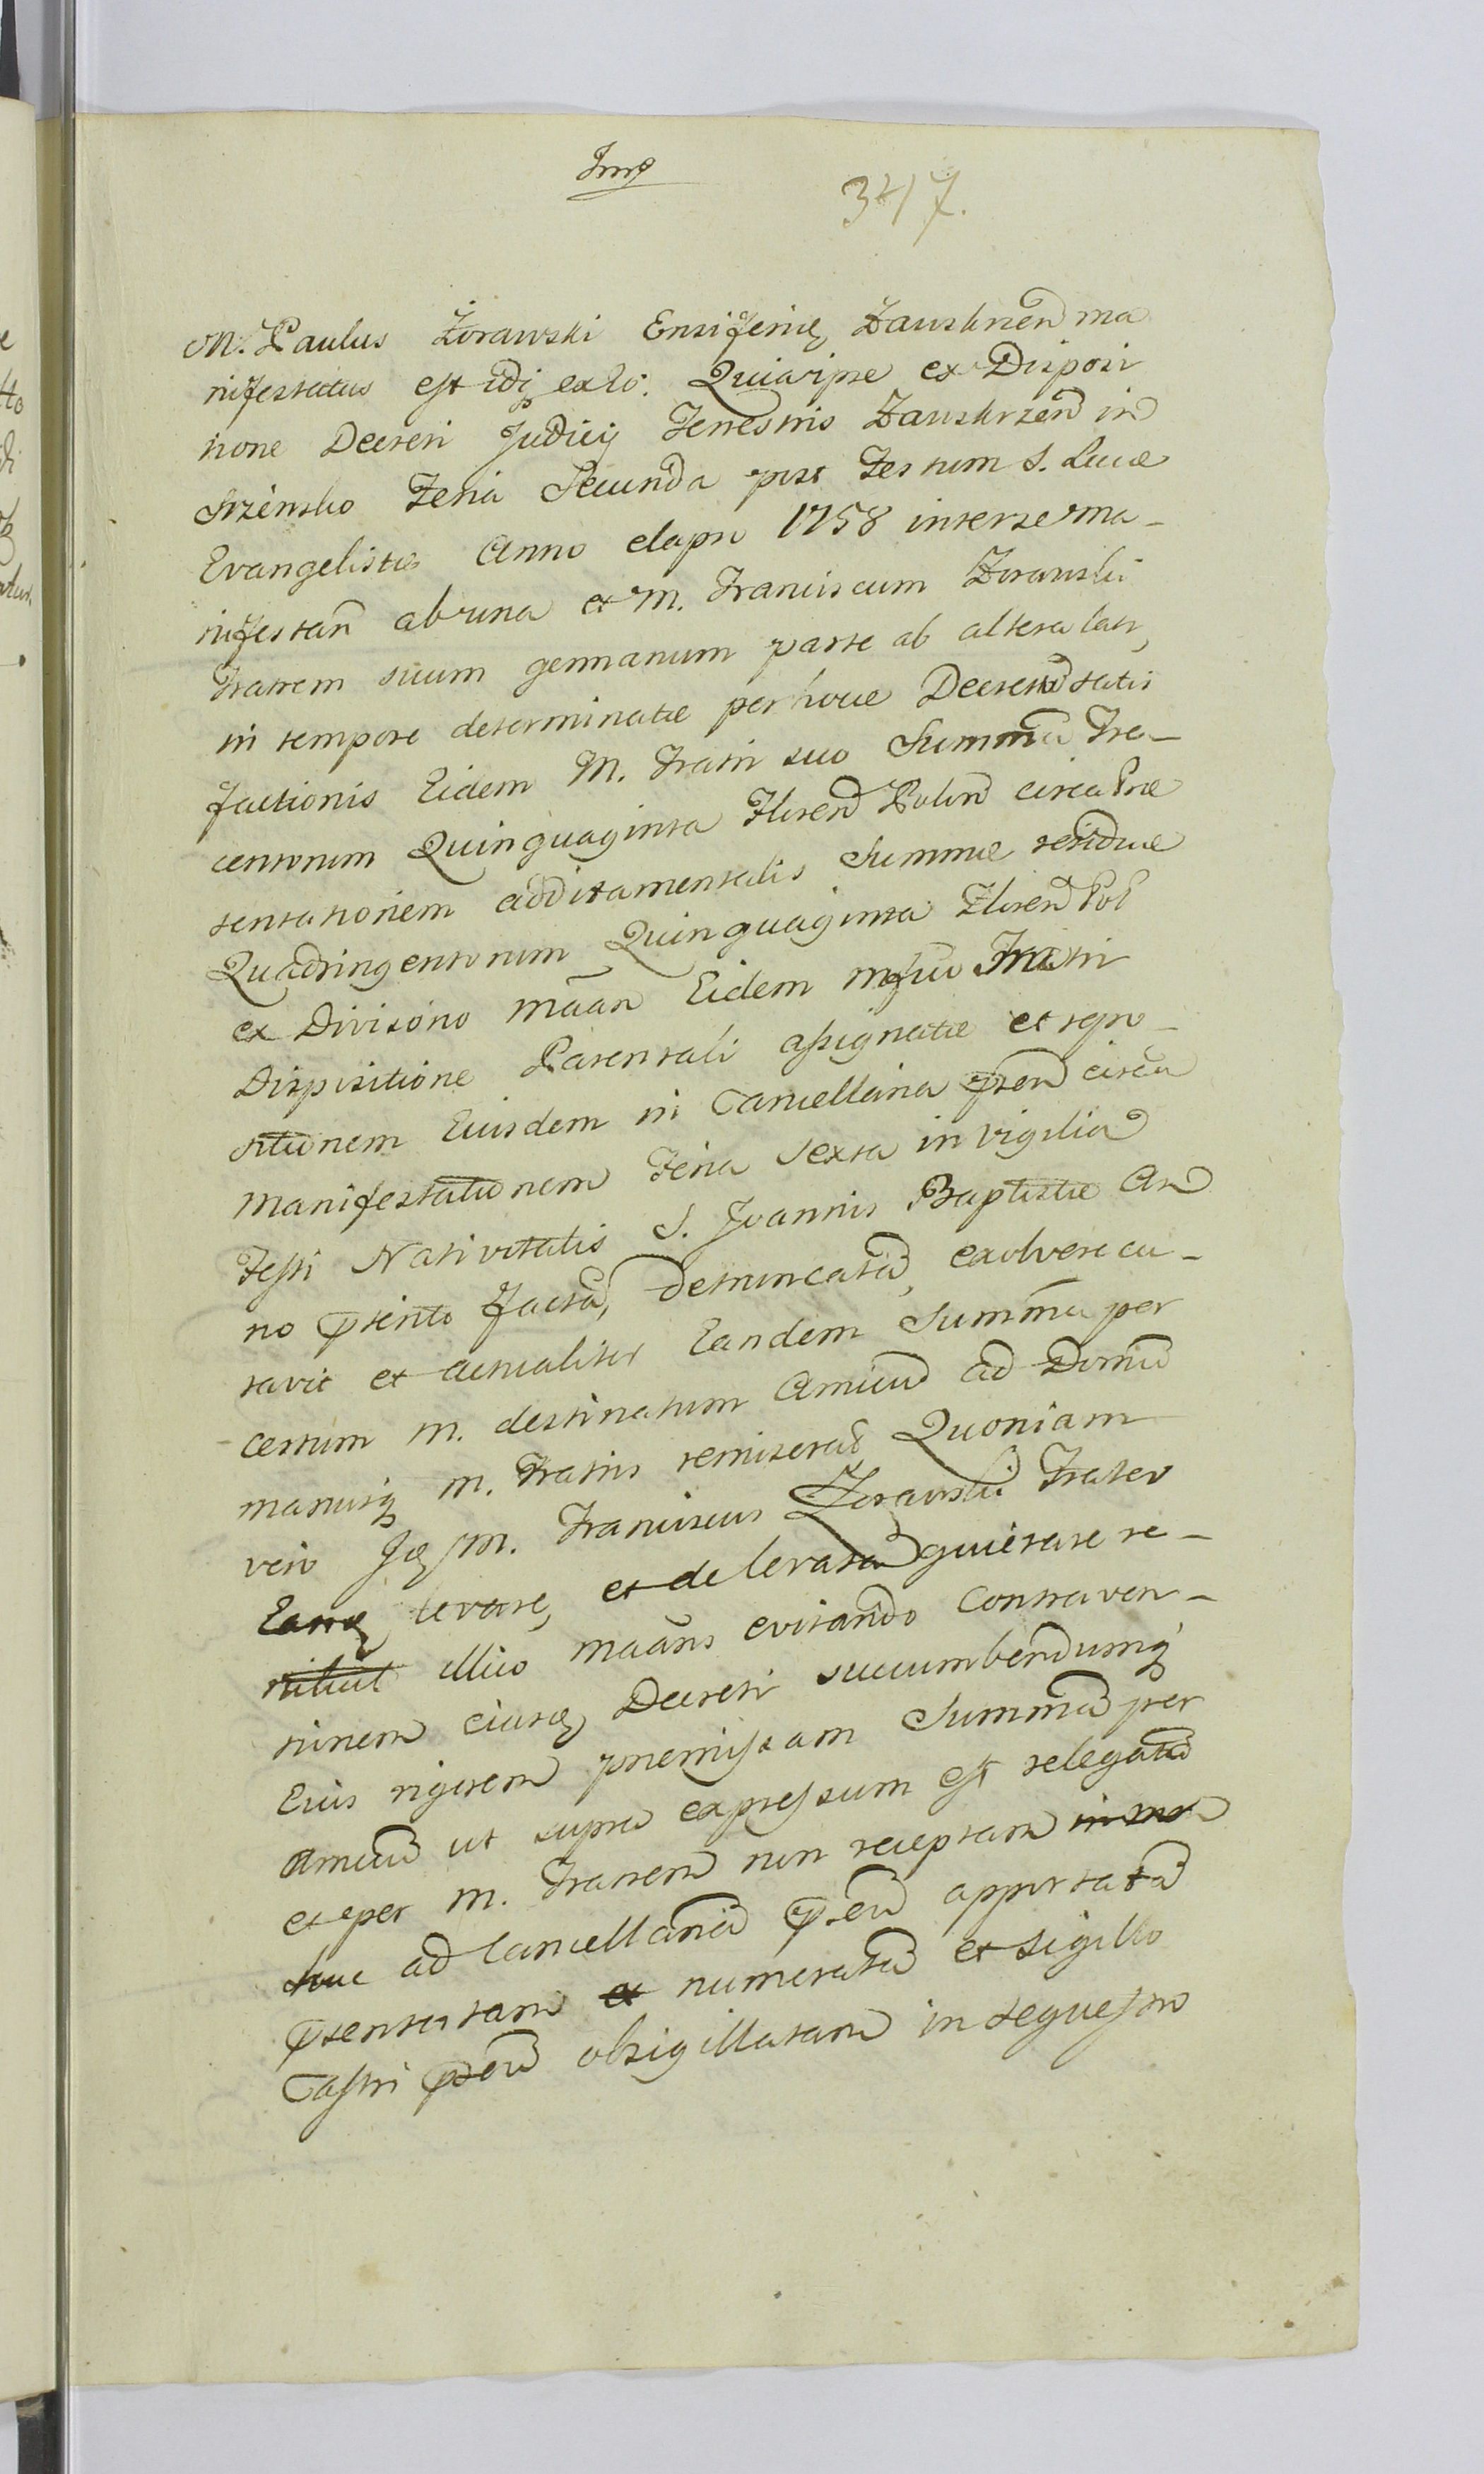 347.
M. Paulus Żorawski Ensiferię Zawskrzeń ma
nifestatus est idq ex eo. Quia ipse ex Disposi
tione Decreti Judicij Terrestris Zawskrzeń in
Szrensko Feria Secunda post Festum S. Lucæ
Evangelistæ Anno elapso 1758 inter se ma-
nifestan ab una et M. Franciscum Zorawski
Fratrem suum germanum parte ab altera lati,
in tempore determinatæ per hocce Decretum satis
factionis Eidem M. Fratri suo Summa Tre-
centorum Quinquaginta Floren Polon circa Præ
sentationem additamentalis Summæ residuæ
Quadringentorum Quinquaginta Floren Pol
ex Divisono mãan Eidem M. suo Fratri
Dispositione Parentali assignatæ et repo-
sitionem Eiusdem in Cancellaria pñen circa
Manifestationem Feria Sexta in vigilia
Festi Nativitatis S. Joannis Baptistæ An
no pñenti factã, detruncatã, exolvere cu-
ravit et actualiter Eandem Summã per
certum M. destinatum Amicũ ad Domũ
manusq M. Fratris remiserat Quoniam
vero Jdẽ M. Franciscus Zorawski Frater
Eamq levare, et de levata quietare re-
nituit illico maãns evitando Contraven-
tionem eiusq Decreti succumbendumq
Eius rigorem præmissam Summã per
Amicũ ut supra expressum est relegatã
et per M. Fratrem non receptam
huc ad Cancellariã pñen apportatã
pñsentatam et numeratã et sigillo
Castri pñen obsigillatam in sequestro